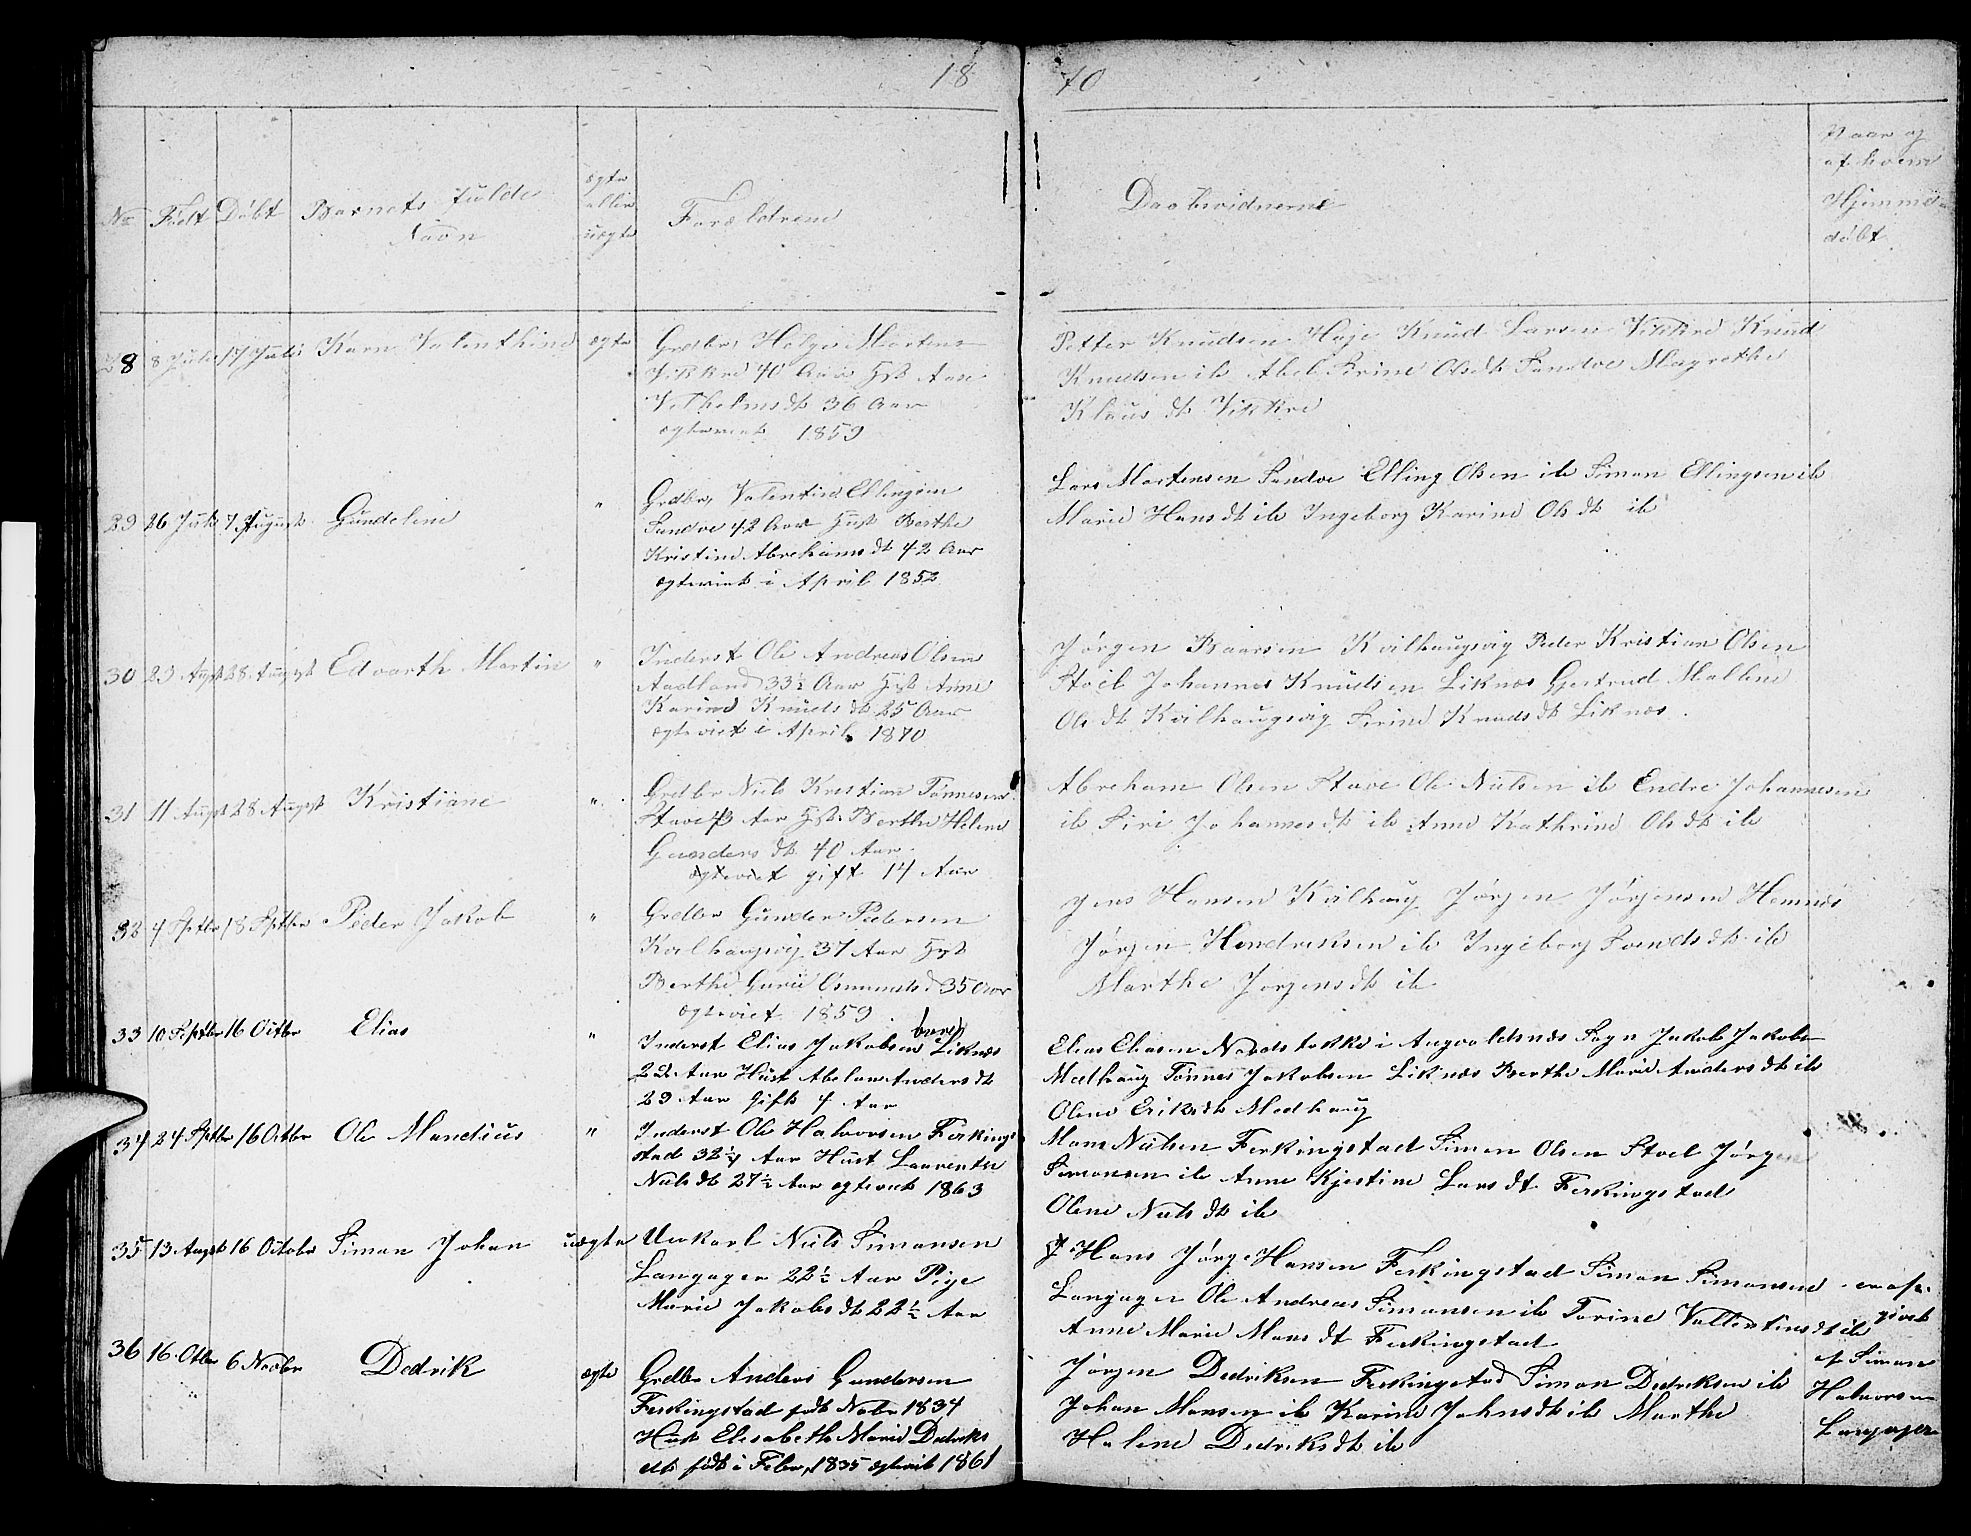 18 70
No Født Døbt Barnets fulde Navn ægte eller uægte Forældrene Daabvidnerne Naar og af hvem Hjemmedøbt
28 8 Juli 17 Juli Karn Valenthine ægte Grdbr Helge Mortens
Vikkre 40 Aar Hst Ane
Vilhelmsdt 36 Aar
ægteviet 1859
Petter Knudsen Høje Knud Larsen Vikkre Knud
Knudsen ib Abel Serine Olsdt Sandve Magrethe
Klausdt Vikkre
29 26 Juli 7 August Gundeline " Grdbr Valentin Ellingsen
Sandve 42 Aar Hust Berthe
Kristine Abrehamsdt 42 Aar
ægteviet i April 1852
Lars Mortensen Sandve Elling Olsen ib Simon Ellingsen ib
Marie Hansdt ib Ingeborg Karine Olsdt ib
30 23 Augst 28 August Edvarth Martin " Inderst Ole Andreas Olsen
Aadland 33½ Aar Hst Anne
Karine Knudsdt 25 Aar
ægteviet i April 1870
Jørgen Baarsen Kvilhaugsvig Peder Kristian Olsen
Stoel Johannes Knudsen Liknæs Gjertrud Mallene
Olsdt Kvilhaugsvig Serine Knudsdt Liknæs
31 11 Augst 28 August Kristiane " Grdbr Niels Kristian Tønnesen
Stave Aar Hst Berthe Helene
Gundersdt 40 Aar
ægteviet gift 14 Aar
Abreham Olsen Stave Ole Nielsen ib Endre Johannesen
ib Siri Johannesdt ib Anne Kathrine Olsdt ib
32 4 Septbr 18 Septbr Peder Jakob " Grdbr Gunder Pedersen
Kvilhaugsvig 37 Aar Hst
Berthe Gurie Osmundsd 35 Aar
ægteviet 1859
Jens Hansen Kvilhaug Jørgen Jørgensen Hemnes
Jørgen Hendriksen ib Ingeborg Svendsdt ib
Marthe Jørgensdt ib
33 10 Septbr 16 Octbr Elias " Inderst Elias Jakobsen Liknæs
22 Aar Hust Abelone Andersdt
23 Aar Gift 4 Aar
Elias Eliasen Nordstokke i Augvaldsnæs Sogn Jakob Jakobs
Medhaug Tønnes Jakobsen Liknæs Berthe Marie Andersdt ib
Olene Eriksdt Medhaug
34 24 Septbr 16 Octbr Ole Mandius " Inderst Ole Halvorsen Ferkings
stad 32½ Aar Hust Laurentse
Nielsdt 27½ Aar ægteviet 1863
Mons Nielsen Ferkingstad Simon Olsen Stoel Jørgen
Simonsen ib Anne Kjestine Larsdt Ferkingstad
Olene Nielsdt ib
35 13 Augst 16 Octobr Simon Johan uægte Unkarl Niels Simonsen
Langager 22½ Aar Pige
Marie Jakobsdt 22½ Aar
Hans Jørge Hansen Ferkingstad Simon Simonsen
Langager Ole Andreas Simonsen ib Torine Vallentinsdt ib
Anne Marie Monsdt Ferkingstad
givet
af Simon
Halvorsen
Langager
36 16 Otbr 6 Novbr Dedrik ægte Grdbr Anders Gundersen
Ferkingstad født Nobr 1834
Hust Elisabeth Marie Dedriks
dt født i Febr 1835 ægteviet 1861
Jørgen Dedriksen Ferkingstad Simon Dedriksen ib
Johan Monsen ib Karine Johnsdt ib Marthe
Helene Dedriksdt ib